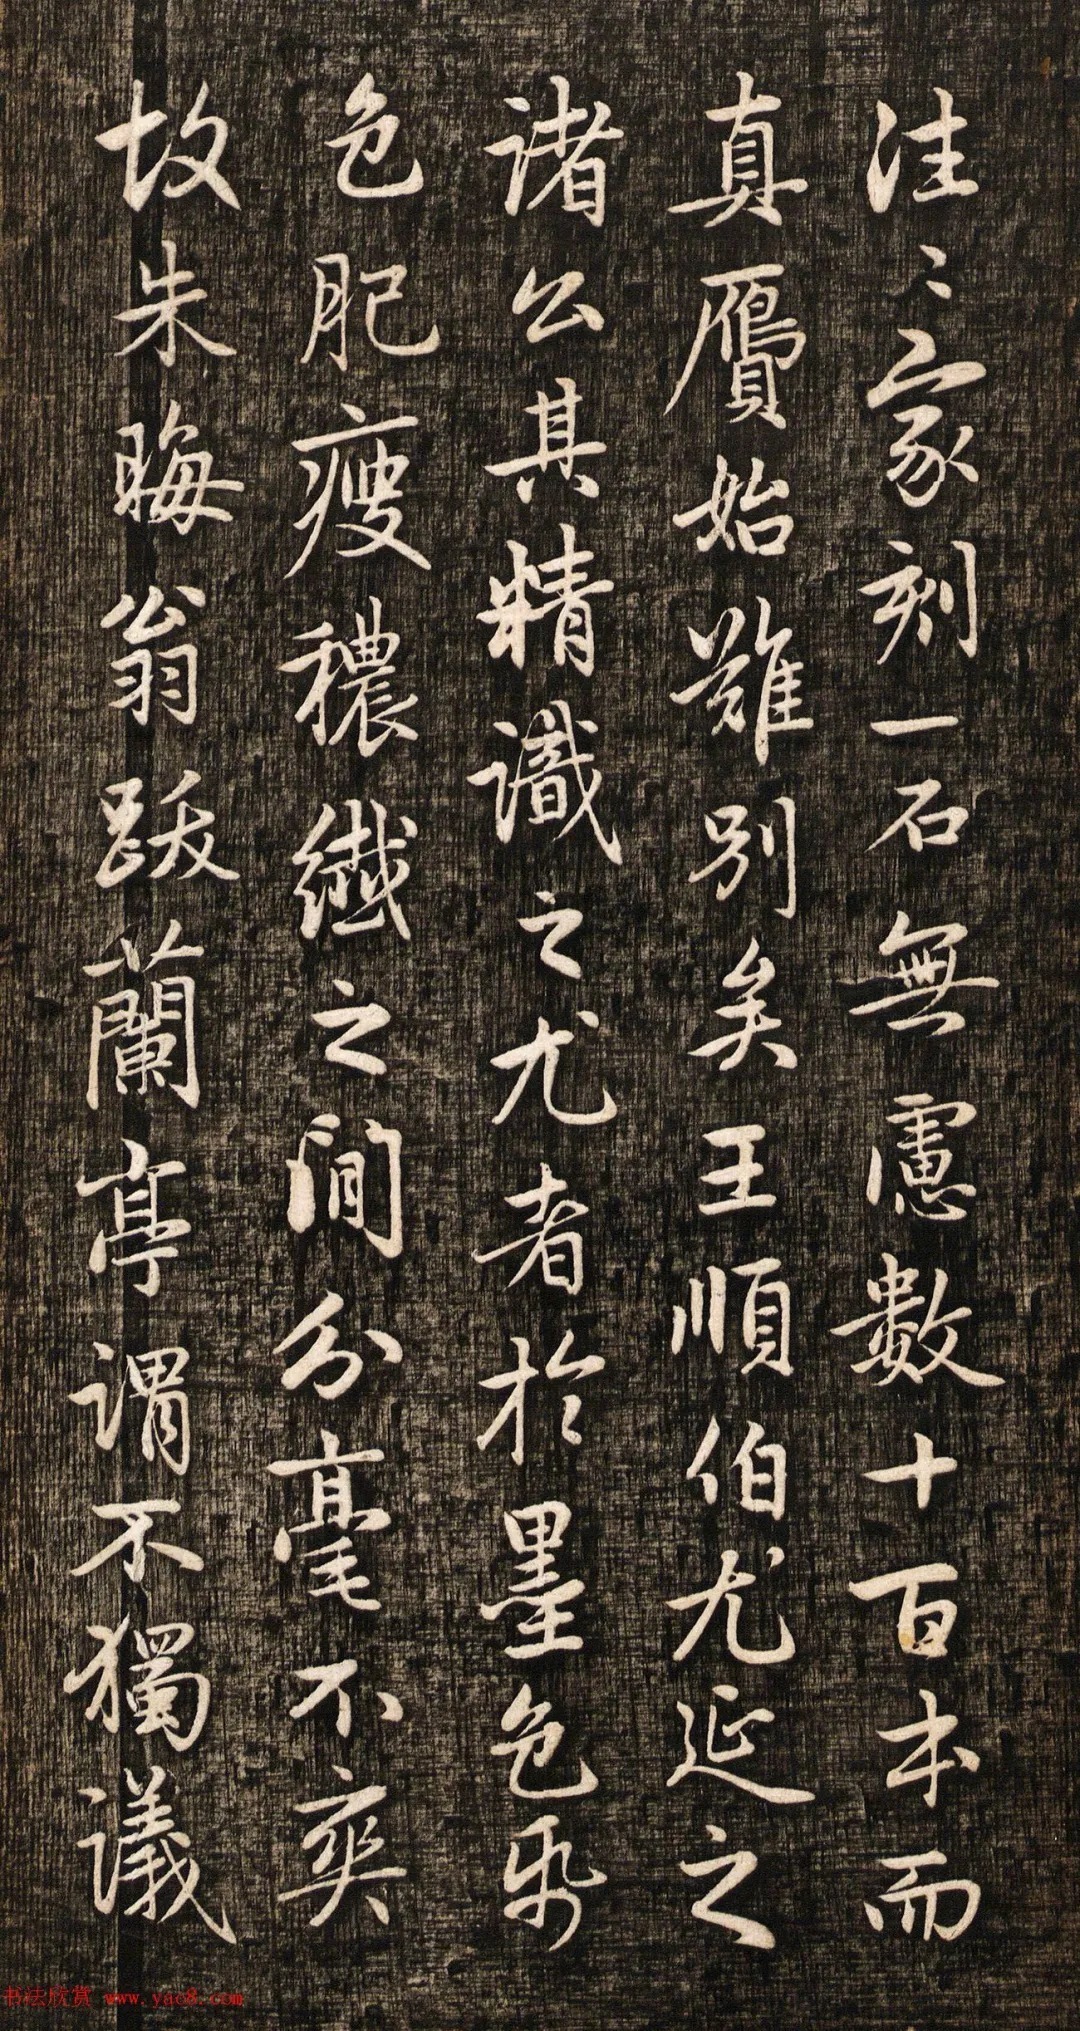 往〻家刻一石無慮數十百本而
真贗始難別矣王順伯尤延之
諸公其精識之尤者於墨色帋
色肥瘦穠纖之間分毫不爽
故朱晦翁跋蘭亭謂不獨議
书法欣赏 www.yac8.com